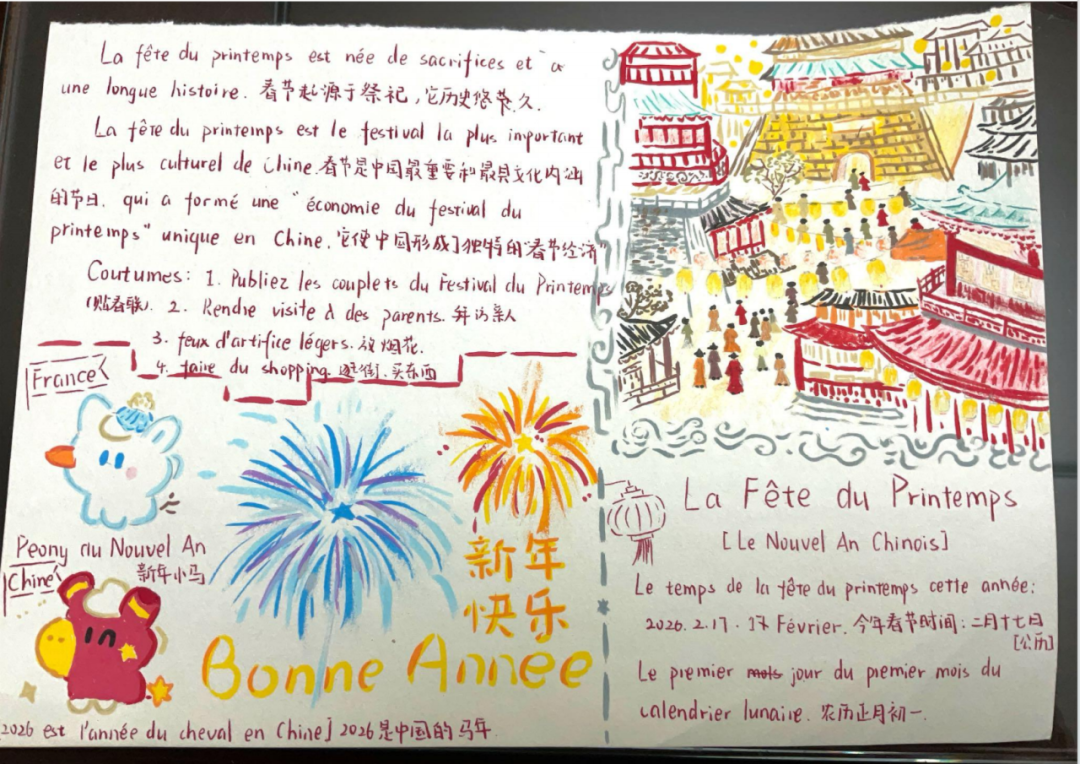 La fête du printemps est née de sacrifices et a
une longue histoire. 春节起源于祭祀,它历史悠久.
La fête du printemps est le festival la plus important
et le plus culturel de Chine.春节是中国最重要和最具文化内涵
的节日. qui a formé une "économie du festival du
printemps" unique en Chine.它使中国形成了独特的"春节经济"
Coutumes: 1. Publiez les couplets du Festival du Printemps
(贴春联). 2. Rendre visite à des parents.
3. feux d'artifice légers.放烟花.
4. faire du shopping.逛街.买东西
France
Peony au Nouvel An
新年小马
Chine
新年
快乐
Bonne Année
2026 est l'année du cheval en Chine] 2026是中国的马年.
La Fête du Printemps
[Le Nouvel An Chinois]
Le temps de la fête du printemps cette année:
2026.2.17. 17 Février.今年春节时间:二月十七日
[公历]
Le premier mois jour du premier mois du
calendrier lunaire.农历正月初一.